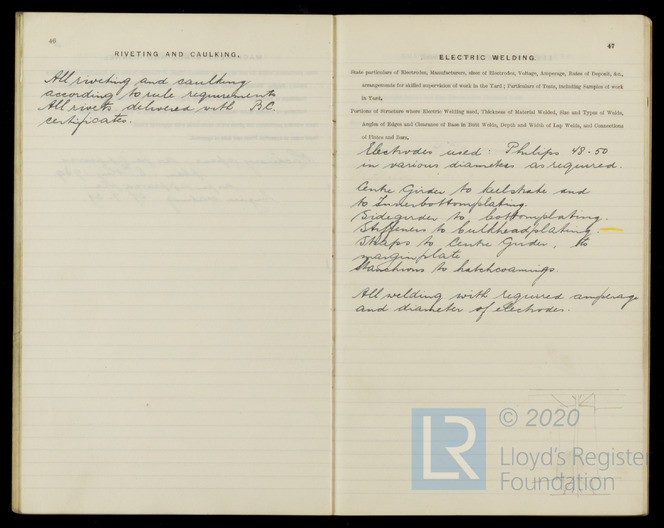 46
RIVETING AND CAULKING.
All riveting and caulking
according to rule requirements
All rivets delivered with B.C.
certificates.
47
ELECTRIC WELDING.
State particulars of Electrodes, Manufacturers, sizes of Electrodes, Voltage, Amperage, Rates of Deposit, &c.,
arrangements for skilled supervision of work in the Yard; Particulars of Tests, including Samples of work
in Yard,
Portions of Structure where Electric Welding used, Thickness of Material Welded, Size and Types of Welds,
Angles of Edges and Clearance of Bases in Butt Welds, Depth and Width of Lap Welds, and Connections
of Plates and Bars,
Electrodes used: Philips 48-50
in various diameters as required.
Centre Girder to keelstrake and
to Innerbottomplating.
Sidegirder to bottomplating.
Stiffeners to bulkheadplating.
Straps to Centre Girder, to
marginplate
Stanchions to hatchcoamings.
All welding with required amperage
and diameter of electrodes.
LR
© 2020
Lloyd's Register
Foundation